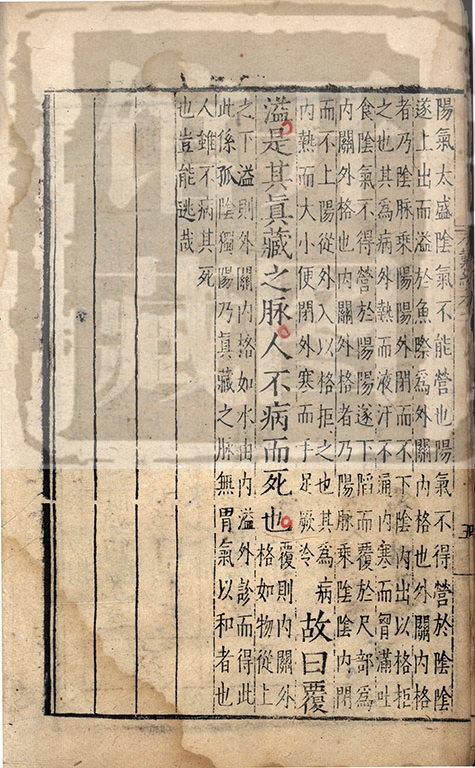 陽氣太盛陰氣不能營也陽氣不得營於陰陰
遂上出而溢於魚際爲外關內格也外關內格
者乃陰脉乘陽陽外閉而不下陰內出以格拒
之也其爲病外熱而液汗不通內寒而胷滿吐
食陰氣不得營於陽陽遂下陷而覆於尺部爲
內關外格也內關外格者乃陽脉乘陰陰內閉
而不上陽從外入以格拒之也其爲病
內熱而大小便閉外寒而手足厥冷
故曰覆
溢是其眞藏之脉人不病而死也
覆則內關外
格如物從上
之下溢則外關內格如水由內溢外診而得此
此係孤陰獨陽乃眞藏之脉無胃氣以和者也
人雖不病其死
也豈能逃哉
五